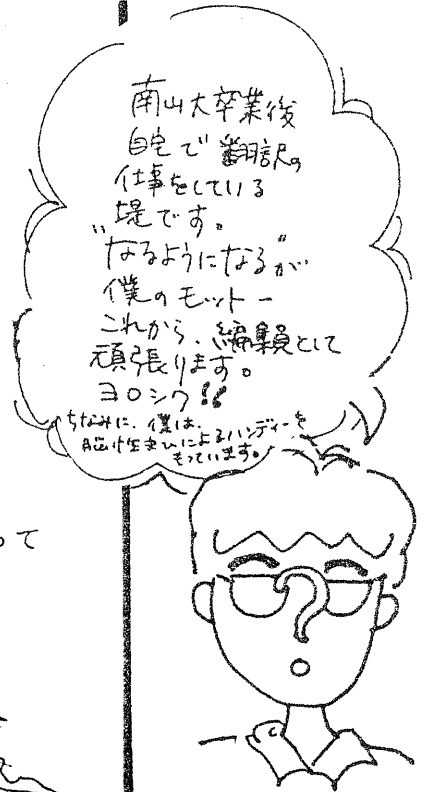 南山大卒業後
自宅で翻訳の
仕事をしている
堤です。
"なるようになる"が
僕のモットー
これから、編集員として
頑張ります。
ヨロシク!!
ちなみに、僕は、
脳性まひによるハンディーを
もっています。
って